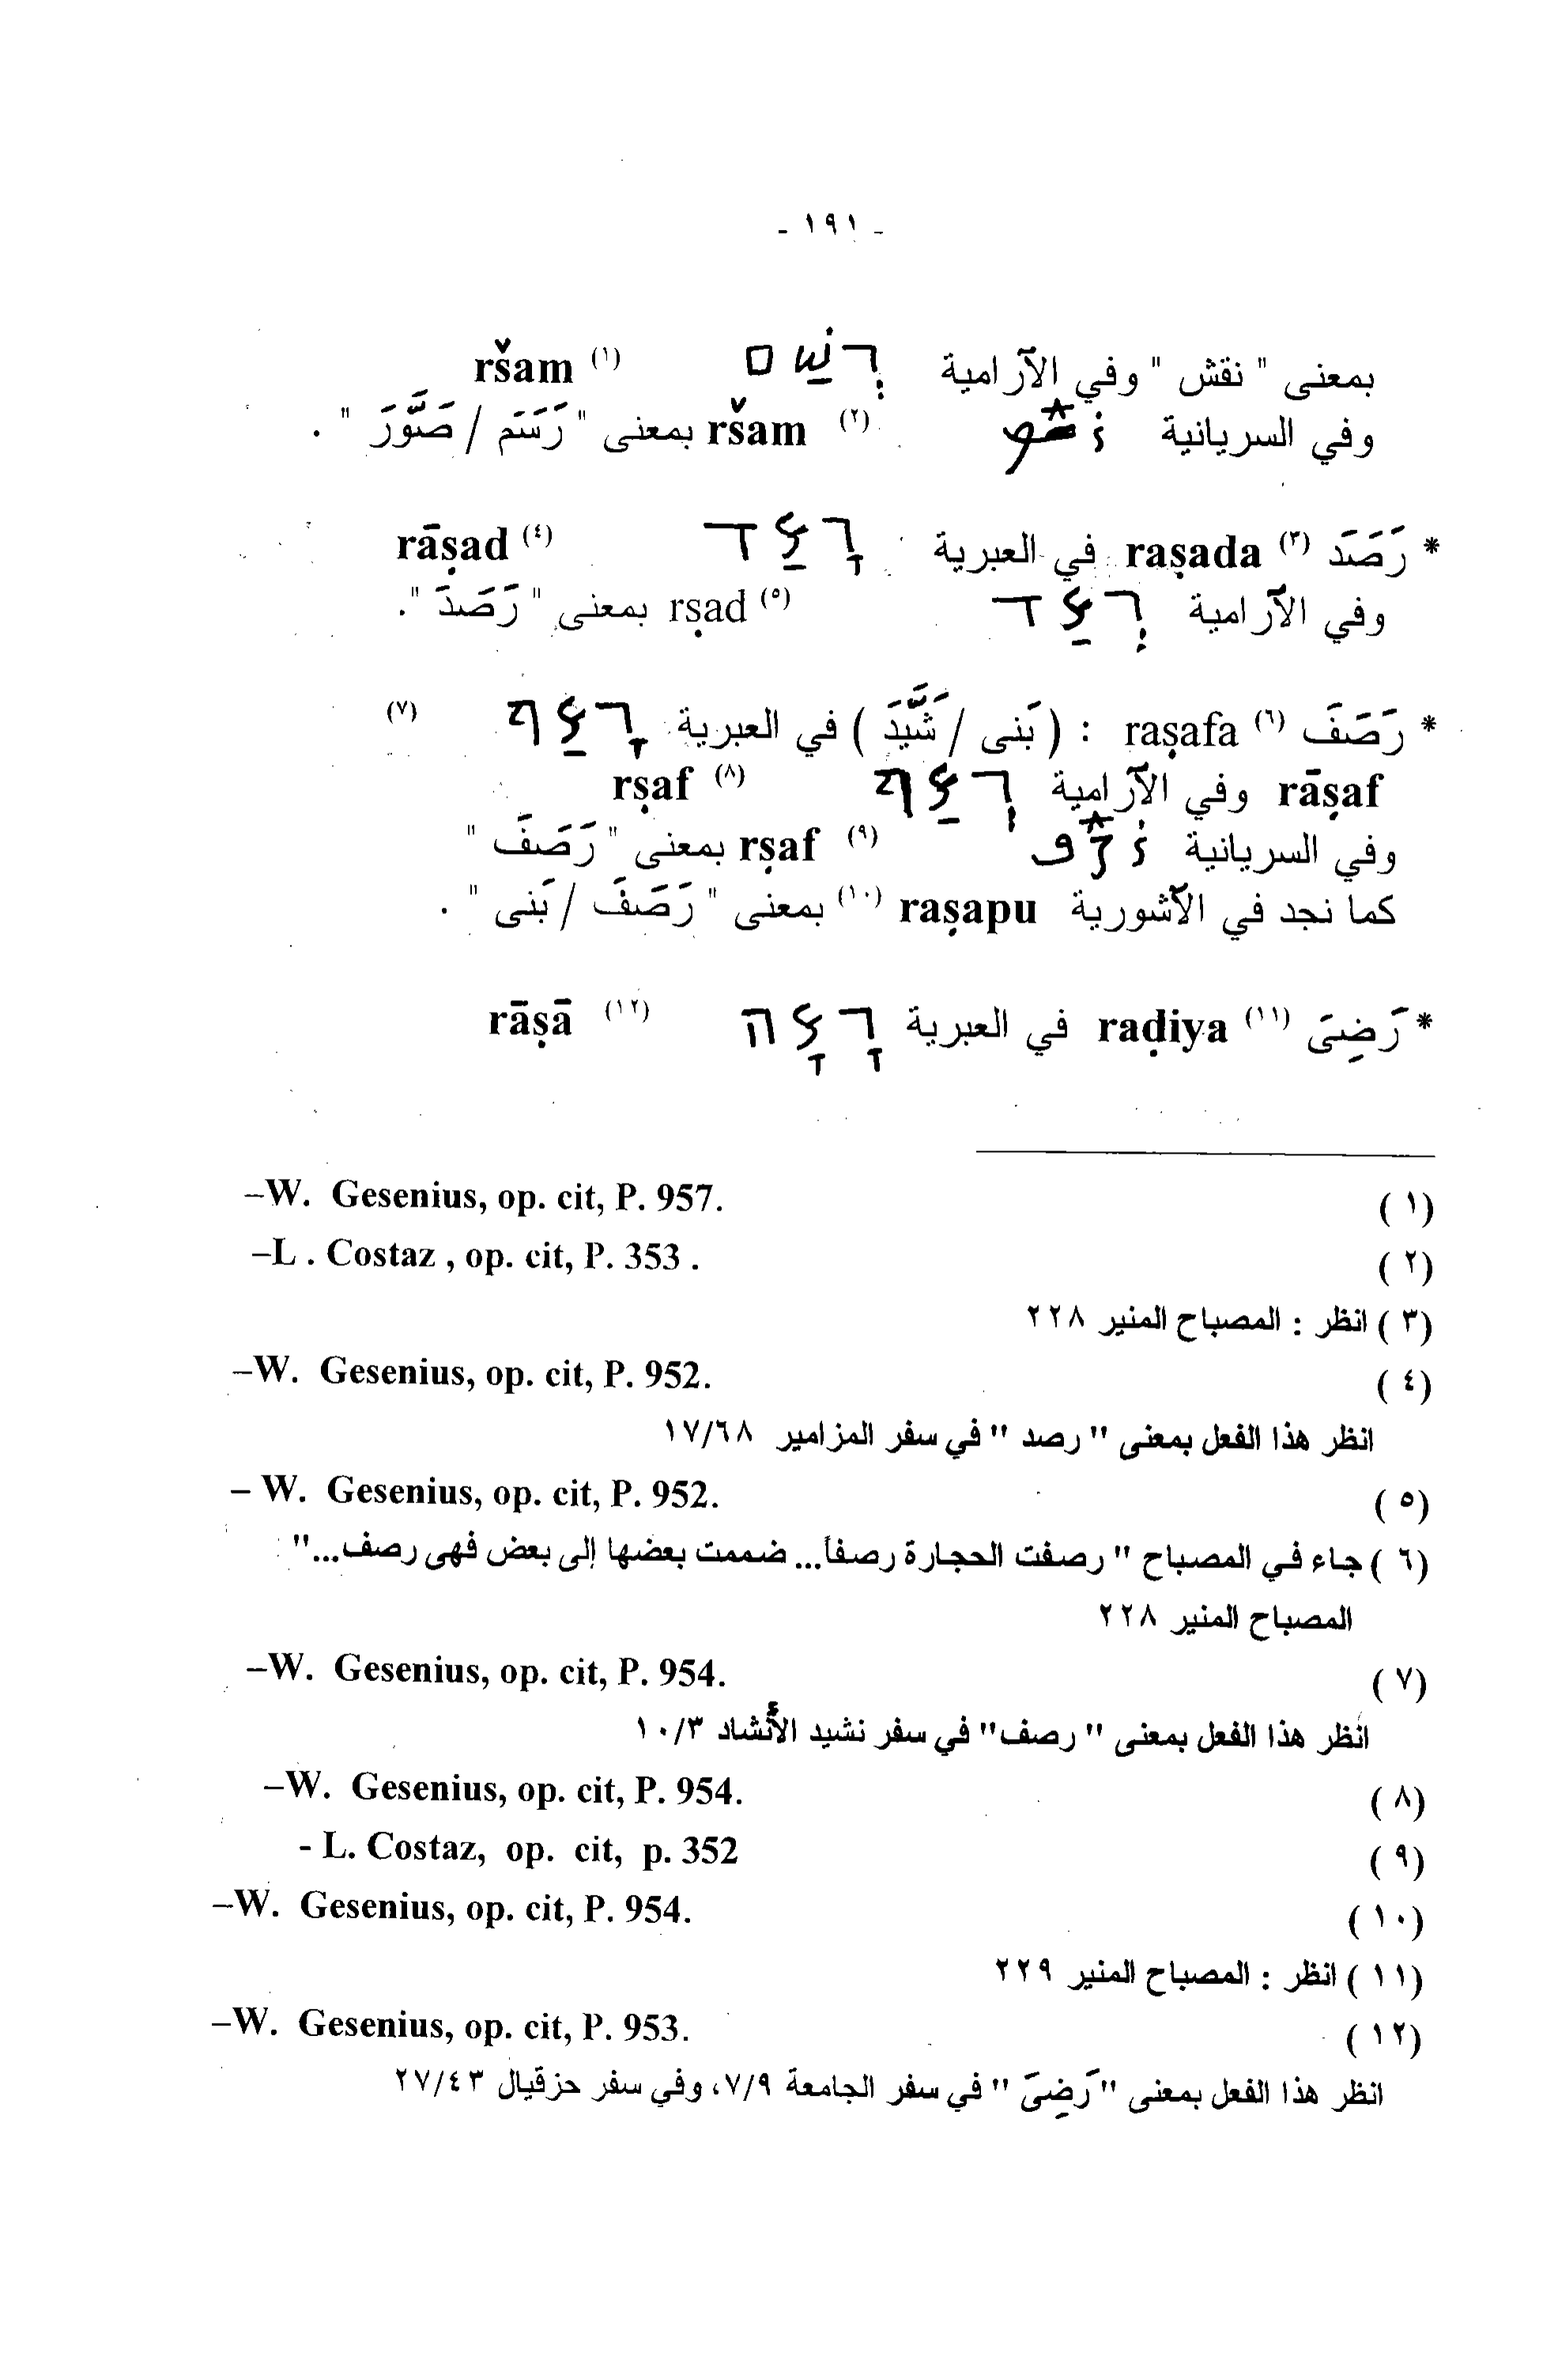 - ١٩١ -
بمعنى " نقش " وفي الآرامية רְשַׁם ršam (١)
وفي السريانية ܪܫܡ ršam (٢) بمعنى " رَسَمَ / صَوَّرَ " .
* رَصَدَ (٣) raṣada في العبرية רָצַד rāṣad (٤)
وفي الآرامية רְצַד rṣad (٥) بمعنى " رَصَدَ ".
* رَصَفَ (٦) raṣafa : ( بَنى / شَيَّدَ ) في العبرية רָצַף (٧)
rāṣaf وفي الآرامية רְצַף rṣaf (٨)
وفي السريانية ܪܨܦ rṣaf (٩) بمعنى " رَصَفَ "
كما نجد في الآشورية raṣapu (١٠) بمعنى " رَصَفَ / بَنى " .
* رَضِىَ (١١) raḍiya في العبرية רָצָה rāṣā (١٢)
(١) –W. Gesenius, op. cit, P. 957.
(٢) –L . Costaz , op. cit, P. 353 .
(٣) انظر : المصباح المنير ٢٢٨
(٤) –W. Gesenius, op. cit, P. 952.
انظر هذا الفعل بمعنى " رصد " في سفر المزامير ١٧/٦٨
(٥) – W. Gesenius, op. cit, P. 952.
(٦) جاء في المصباح " رصفت الحجارة رصفاً... ضممت بعضها إلى بعض فهى رصف..."
المصباح المنير ٢٢٨
(٧) –W. Gesenius, op. cit, P. 954.
انظر هذا الفعل بمعنى " رصف" في سفر نشيد الأنشاد ١٠/٣
(٨) –W. Gesenius, op. cit, P. 954.
(٩) - L. Costaz, op. cit, p. 352
(١٠) –W. Gesenius, op. cit, P. 954.
(١١) انظر : المصباح المنير ٢٢٩
(١٢) –W. Gesenius, op. cit, P. 953.
انظر هذا الفعل بمعنى "رَضِىَ " في سفر الجامعة ٧/٩، وفي سفر حزقيال ٢٧/٤٣